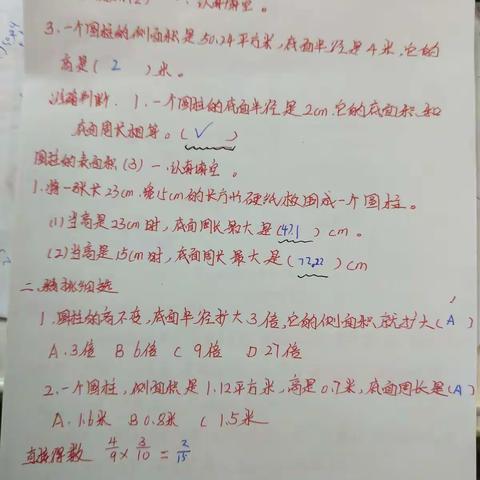 一、认真填空。
3.一个圆柱的侧面积是50.24平方米,底面半径是4米,它的
高是( 2 )米。
判断.1.一个圆柱的底面半径是2cm.它的底面积和
底面周长相等。(√)
圆柱的表面积(3)一.认真填空。
1.将一张长23cm.宽15cm的长方形硬纸板围成一个圆柱。
(1)当高是23cm时,底面周长最大是(47.1)cm。
(2)当高是15cm时,底面周长最大是(72.22)cm
二、
1.圆柱的高不变,底面半径扩大3倍,它的侧面积就扩大(A)
A.3倍 B 6倍 C 9倍 D 27倍
2.一个圆柱,侧面积是1.12平方米,高是0.7米,底面周长是(A)
A.1.6米 B 0.8米 C 1.5米
直接得数 4/9×3/10=2/15